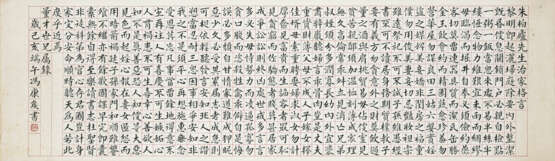 朱柏廬先生治家格言
黎明即起灑掃庭除要內外整潔
既昏便息關鎖門戶必親自檢點
一粥一飯當思來處不易半絲半
縷恒念物力維艱宜未雨而綢繆
毋臨渴而掘井自奉必須儉約宴
客切勿留連器具質而潔瓦缶勝
金玉飲食約而精園蔬愈珍饈勿
營華屋勿謀良田三姑六婆實淫
盜之媒婢美妾嬌非閨房之福童
僕勿用俊美妻妾切忌豔妝祖宗
雖遠祭祀不可不誠子孫雖愚經
書不可不讀居身務期質樸教子
要有義方勿貪意外之財勿飲過
量之酒與肩挑貿易毋佔便宜見
貧苦親鄰須加溫恤刻薄成家理
無久享倫常乖舛立見消亡兄弟
叔姪須分多潤寡長幼內外宜法
肅辭嚴聽婦言乖骨肉豈是丈夫
重貲財薄父母不成人子嫁女擇
佳壻毋索重聘娶媳求淑女勿計
厚奩見富貴而生諂容者最可恥
遇貧窮而作驕態者賤莫甚居家
戒爭訟訟則終凶處世戒多言言
多必失勿恃勢力而凌逼孤寡毋
貪口腹而恣殺生禽乖僻自是悔
誤必多頹惰自甘家道難成狎暱
惡少久必受其累屈志老成急則
可相依輕聽發言安知非人之譖
愬當忍耐三思因事相爭焉知非
我之不是須平心暗想施惠無念
受恩莫忘凡事當留餘地得意不
宜再往人有喜慶不可生妒忌心
人有禍患不可生喜幸心善欲人
見不是真善惡恐人知便是大惡
見色而起淫心報在妻女匿怨而
用暗箭禍延子孫家門和順雖饔
飧不繼亦有餘歡國課早完即囊
橐無餘自得至樂讀書志在聖賢
非徒科第為官心存君國豈計身
家安分守命順時聽天為人若此
庶乎近焉
屬錄
歲己亥端午馮康侯書